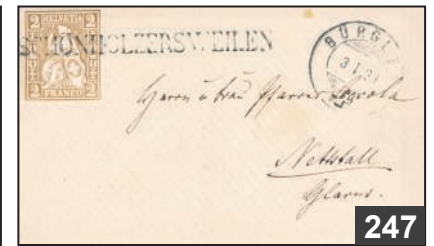 2 HELVETIA 2
2 FRANCO 2
SCHÖNHOLZERSWEILEN
BÜRGL
3 I
Herrn u Frau Pfarrer
Nettstall
Glarus.
247